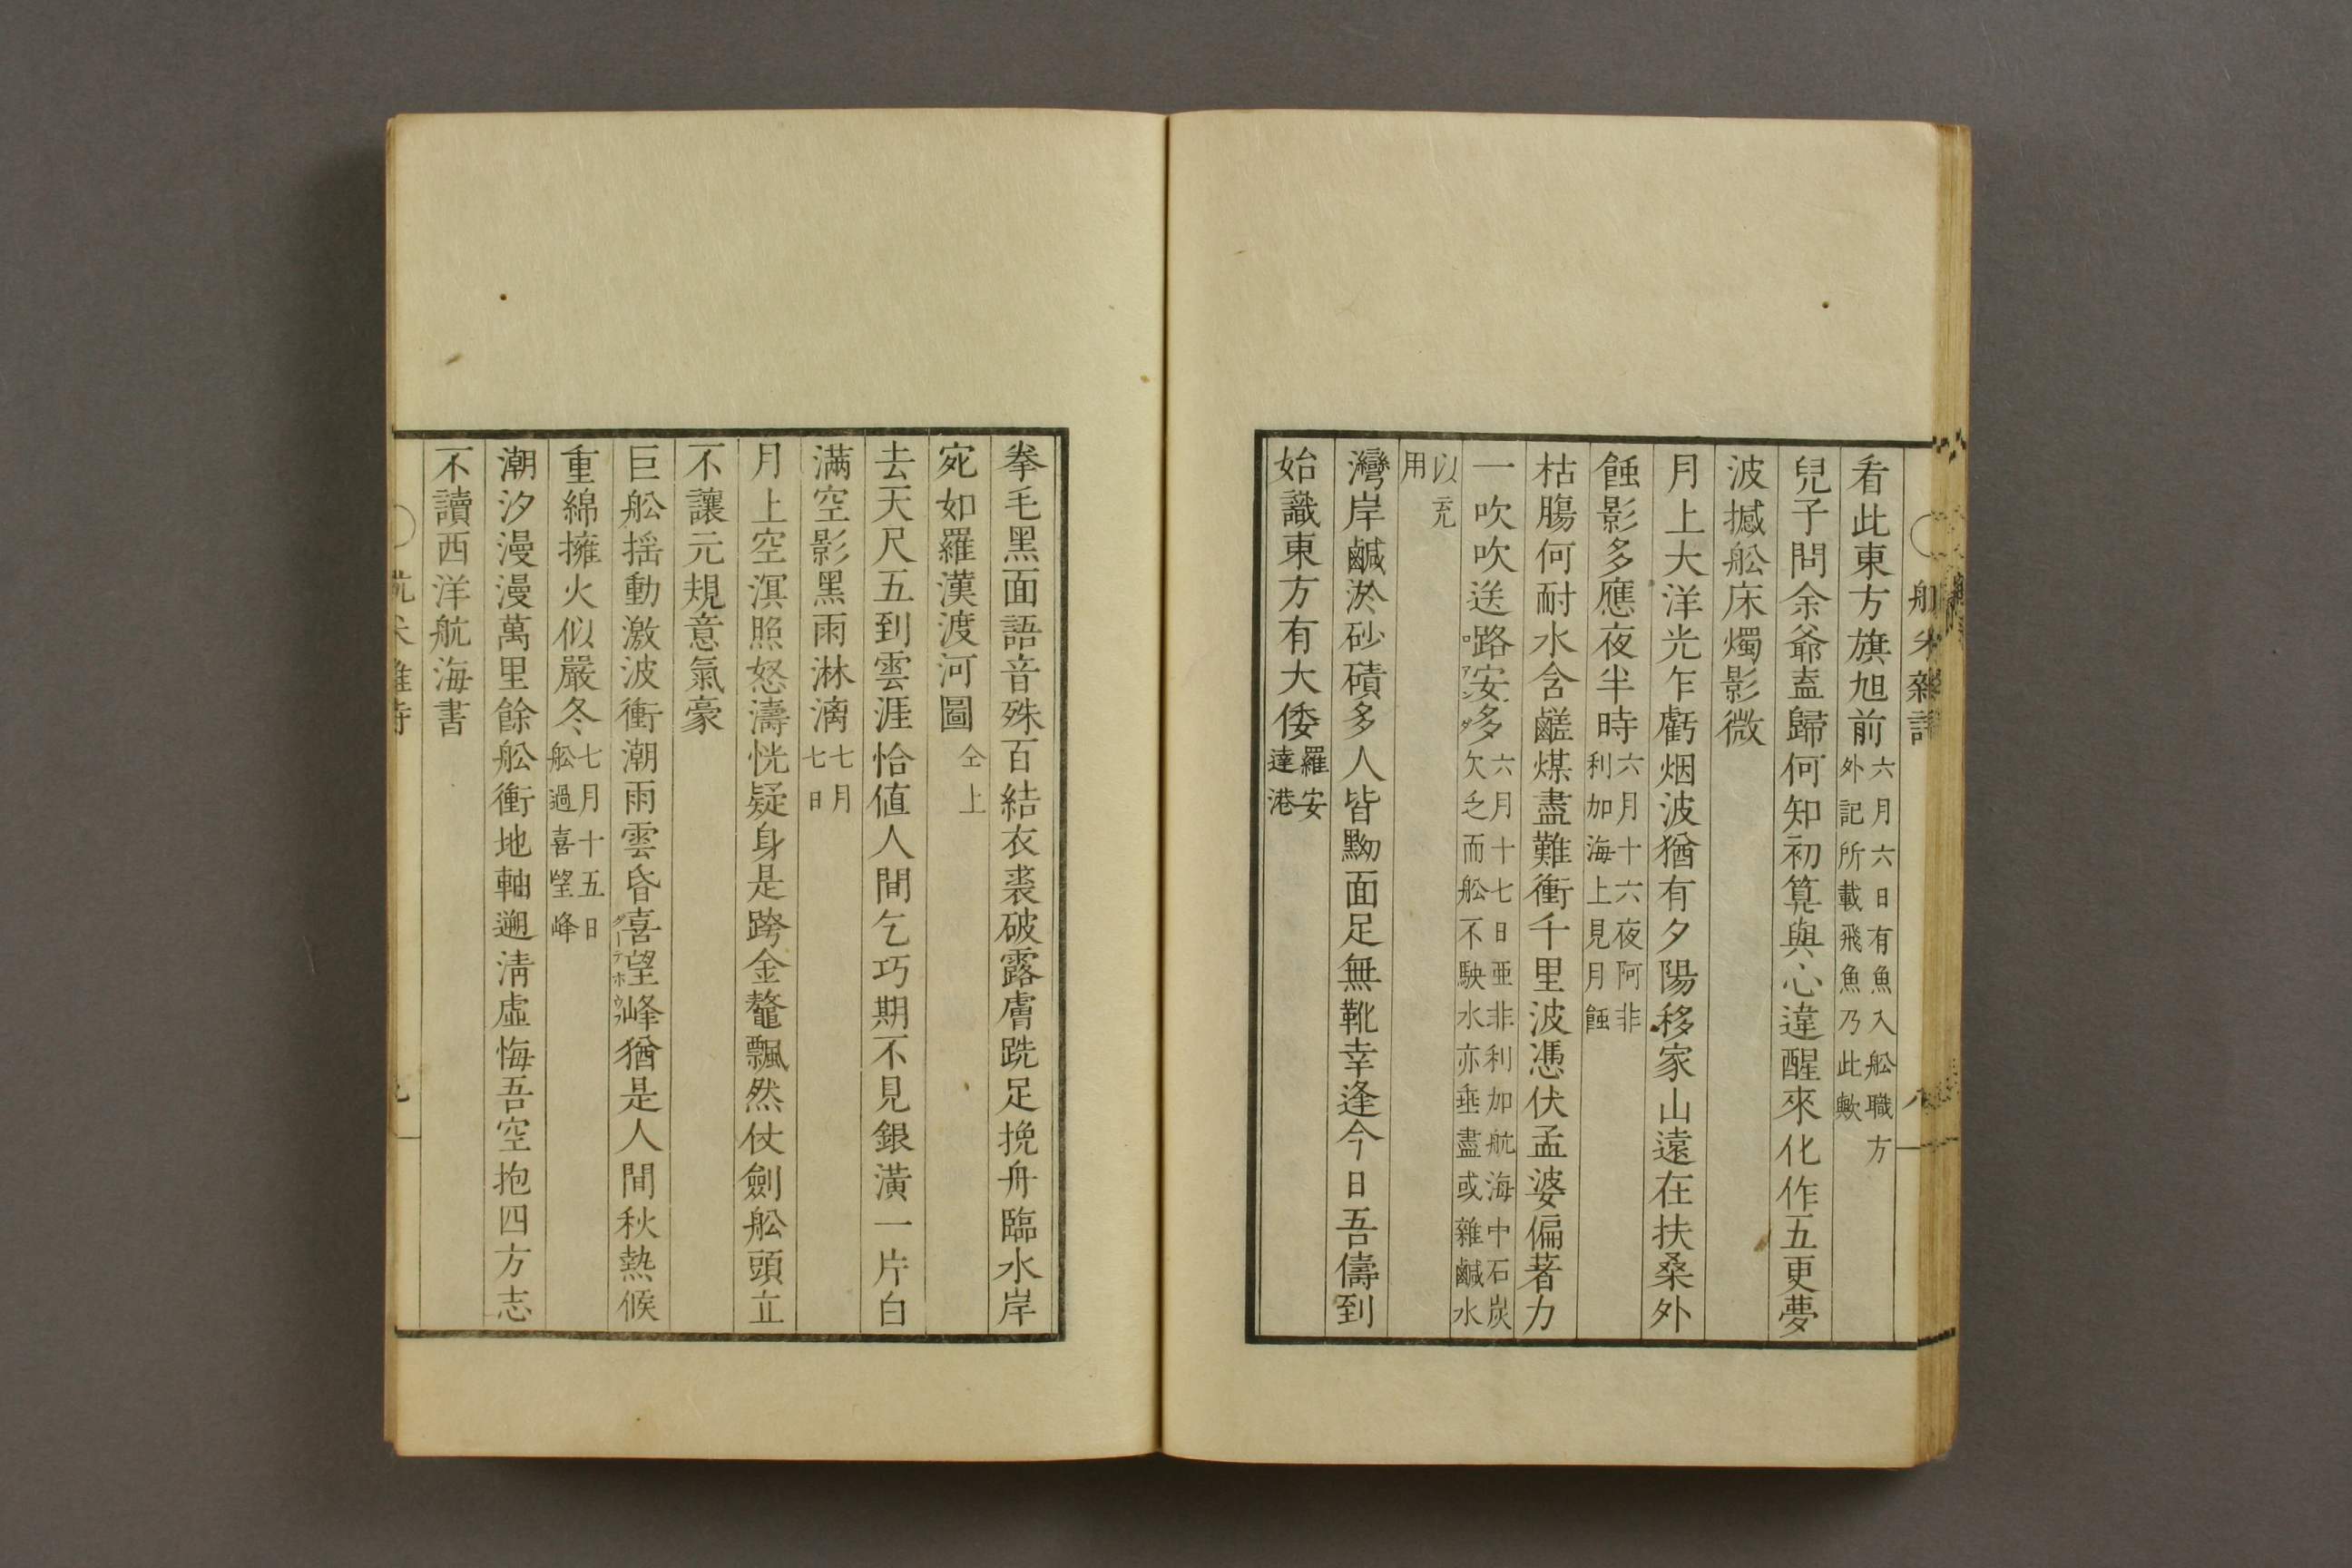 看此東方旗旭前六月六日有魚入舩職方
外記所載飛魚乃此歟
兒子問余爺盍歸何知初算與心違醒來化作五更夢
波撼舩床燭影微
月上大洋光乍虧烟波猶有夕陽移家山遠在扶桑外
蝕影多應夜半時六月十六夜阿非
利加海上見月蝕
枯膓何耐水含鹺煤盡難衝千里波憑伏孟婆偏著力
一吹吹送路安多六月十七日亜非利加航海中石炭
欠乏而舩不駛水亦垂盡或雜鹹水
以充
用
灣岸鹹淤砂磧多人皆黝面足無靴幸逢今日吾儔到
始識東方有大倭羅安
達港
拳毛黑面語音殊百結衣裘破露膚跣足挽舟臨水岸
宛如羅漢渡河圖仝上
去天尺五到雲涯恰値人間乞巧期不見銀潢一片白
滿空影黑雨淋漓七月
七日
月上空溟照怒濤恍疑身是跨金鼇飄然仗劍舩頭立
不讓元規意氣豪
巨舩揺動激波衝潮雨雲昏喜望峰猶是人間秋熱候
重綿擁火似嚴冬七月十五日
舩過喜望峰
潮汐漫漫萬里餘舩衝地軸遡淸虛悔吾空抱四方志
不讀西洋航海書